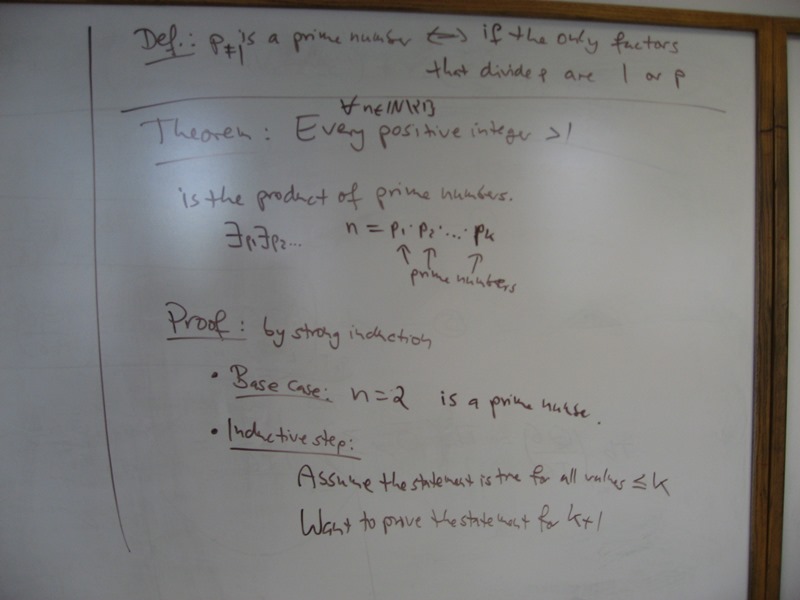 Def.: p≠1 is a prime number ⟺ if the only factors
that divide p are 1 or p
∀ n∈ℕ\{1}
Theorem: Every positive integer >1
is the product of prime numbers.
∃p₁∃p₂... n = p₁·p₂·...·pₖ
↑ ↑ ↑
prime numbers
Proof: by strong induction
• Base case: n=2 is a prime number.
• Inductive step:
Assume the statement is true for all values ≤ k
Want to prove the statement for k+1